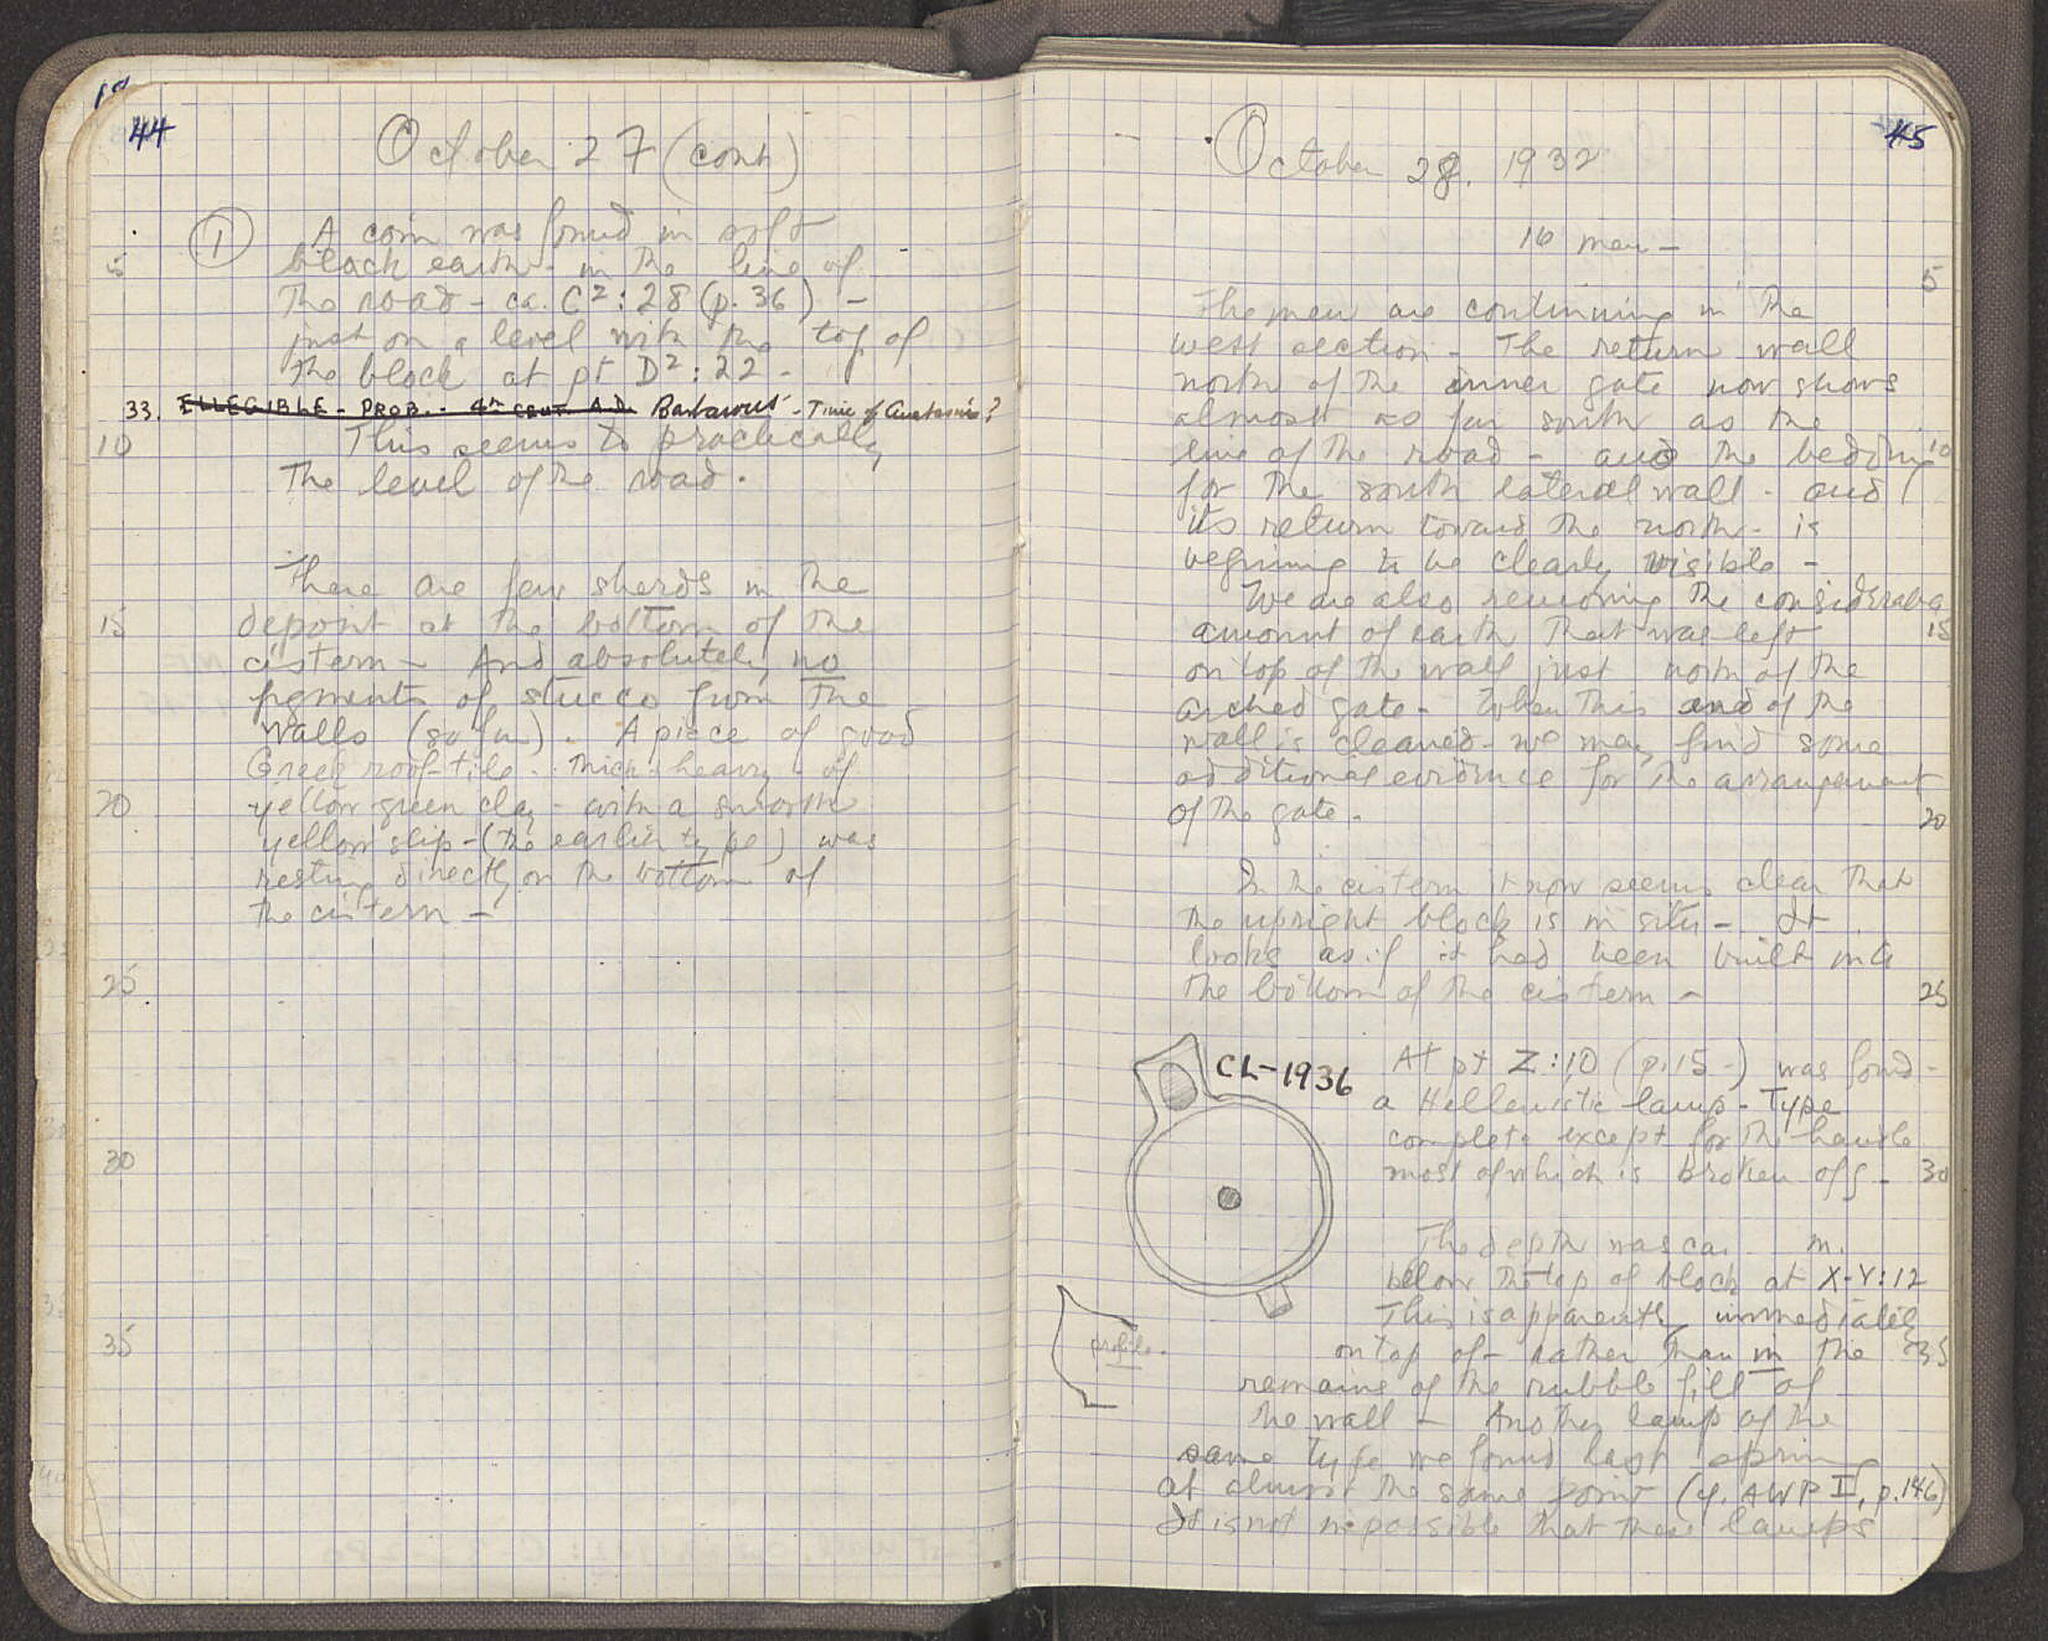 44
October 27 (cont)
① A coin was found in soft
5 black earth - in the line of
the road - ca. C²:28 (p. 36) -
just on a level with the top of
the block at pt D²:22 -
33. ILLEGIBLE - PROB. - 4th CENT. A.D. Barbarous - Time of Anastasius?
10 This seems to practically
the level of the road.
There are few sherds in the
15 deposit at the bottom of the
cistern - And absolutely no
fgments of stucco from the
walls (so far). A piece of good
Greek roof-tile - thick - heavy - of
20 yellow green clay - with a smooth
yellow slip - (the earlier type) was
resting directly on the bottom of
the cistern -
25
30
35
45
October 28. 1932
16 men -
5
The men are continuing in the
west section - The return wall
north of the inner gate now shows
almost as far south as the
line of the road - and the bedding 10
for the south lateral wall - and
its return toward the north - is
begining to be clearly visible -
We are also removing the considerable
amount of earth that was left 15
on top of the wall just north of the
arched gate - When this end of the
wall is cleared - we may find some
additional evidence for the arrangement
of the gate. 20
In the cistern it now seems clear that
the upright block is in situ - It
looks as if it had been built into
the bottom of the cistern - 25
CL-1936
At pt Z:10 (p. 15-) was found -
a Hellenistic lamp - Type
complete except for the handle
most of which is broken off - 30
The depth was ca. m.
below the top of block at X-Y:12
This is apparently immediately
profile.
on top of - rather than in the 35
remains of the rubble fill of
the wall - Another lamp of the
same type we found last spring
at almost the same point (cf. AWP II, p. 146)
It is not impossible that these lamps